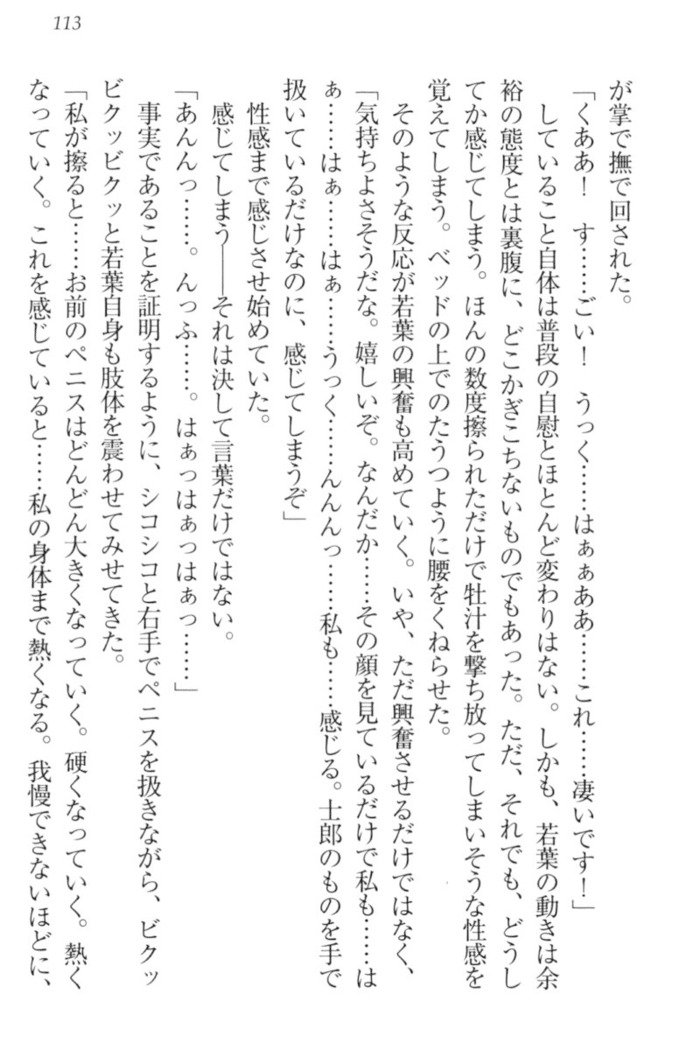 113
が掌で撫で回された。
「くああ！　す……ごい！　うっく……はぁぁああ……これ……凄いです！」
　していること自体は普段の自慰とほとんど変わりはない。しかも、若葉の動きは余
裕の態度とは裏腹に、どこかぎこちないものでもあった。ただ、それでも、どうし
てか感じてしまう。ほんの数度擦られただけで牡汁を撃ち放ってしまいそうな性感を
覚えてしまう。ベッドの上でのたうつように腰をくねらせた。
　そのような反応が若葉の興奮も高めていく。いや、ただ興奮させるだけではなく、
「気持ちよさそうだな。嬉しいぞ。なんだか……その顔を見ているだけで私も……は
ぁ……はぁ……はぁ……うっく……んんんっ……私も……感じる。士郎のものを手で
扱いているだけなのに、感じてしまうぞ」
　性感まで感じさせ始めていた。
　感じてしまう――それは決して言葉だけではない。
「あんんっ……。んっふ……。はぁっはぁっはぁっ……」
　事実であることを証明するように、シコシコと右手でペニスを扱きながら、ビクッ
ビクッビクッと若葉自身も肢体を震わせてみせてきた。
「私が擦ると……お前のペニスはどんどん大きくなっていく。硬くなっていく。熱く
なっていく。これを感じていると……私の身体まで熱くなる。我慢できないほどに、